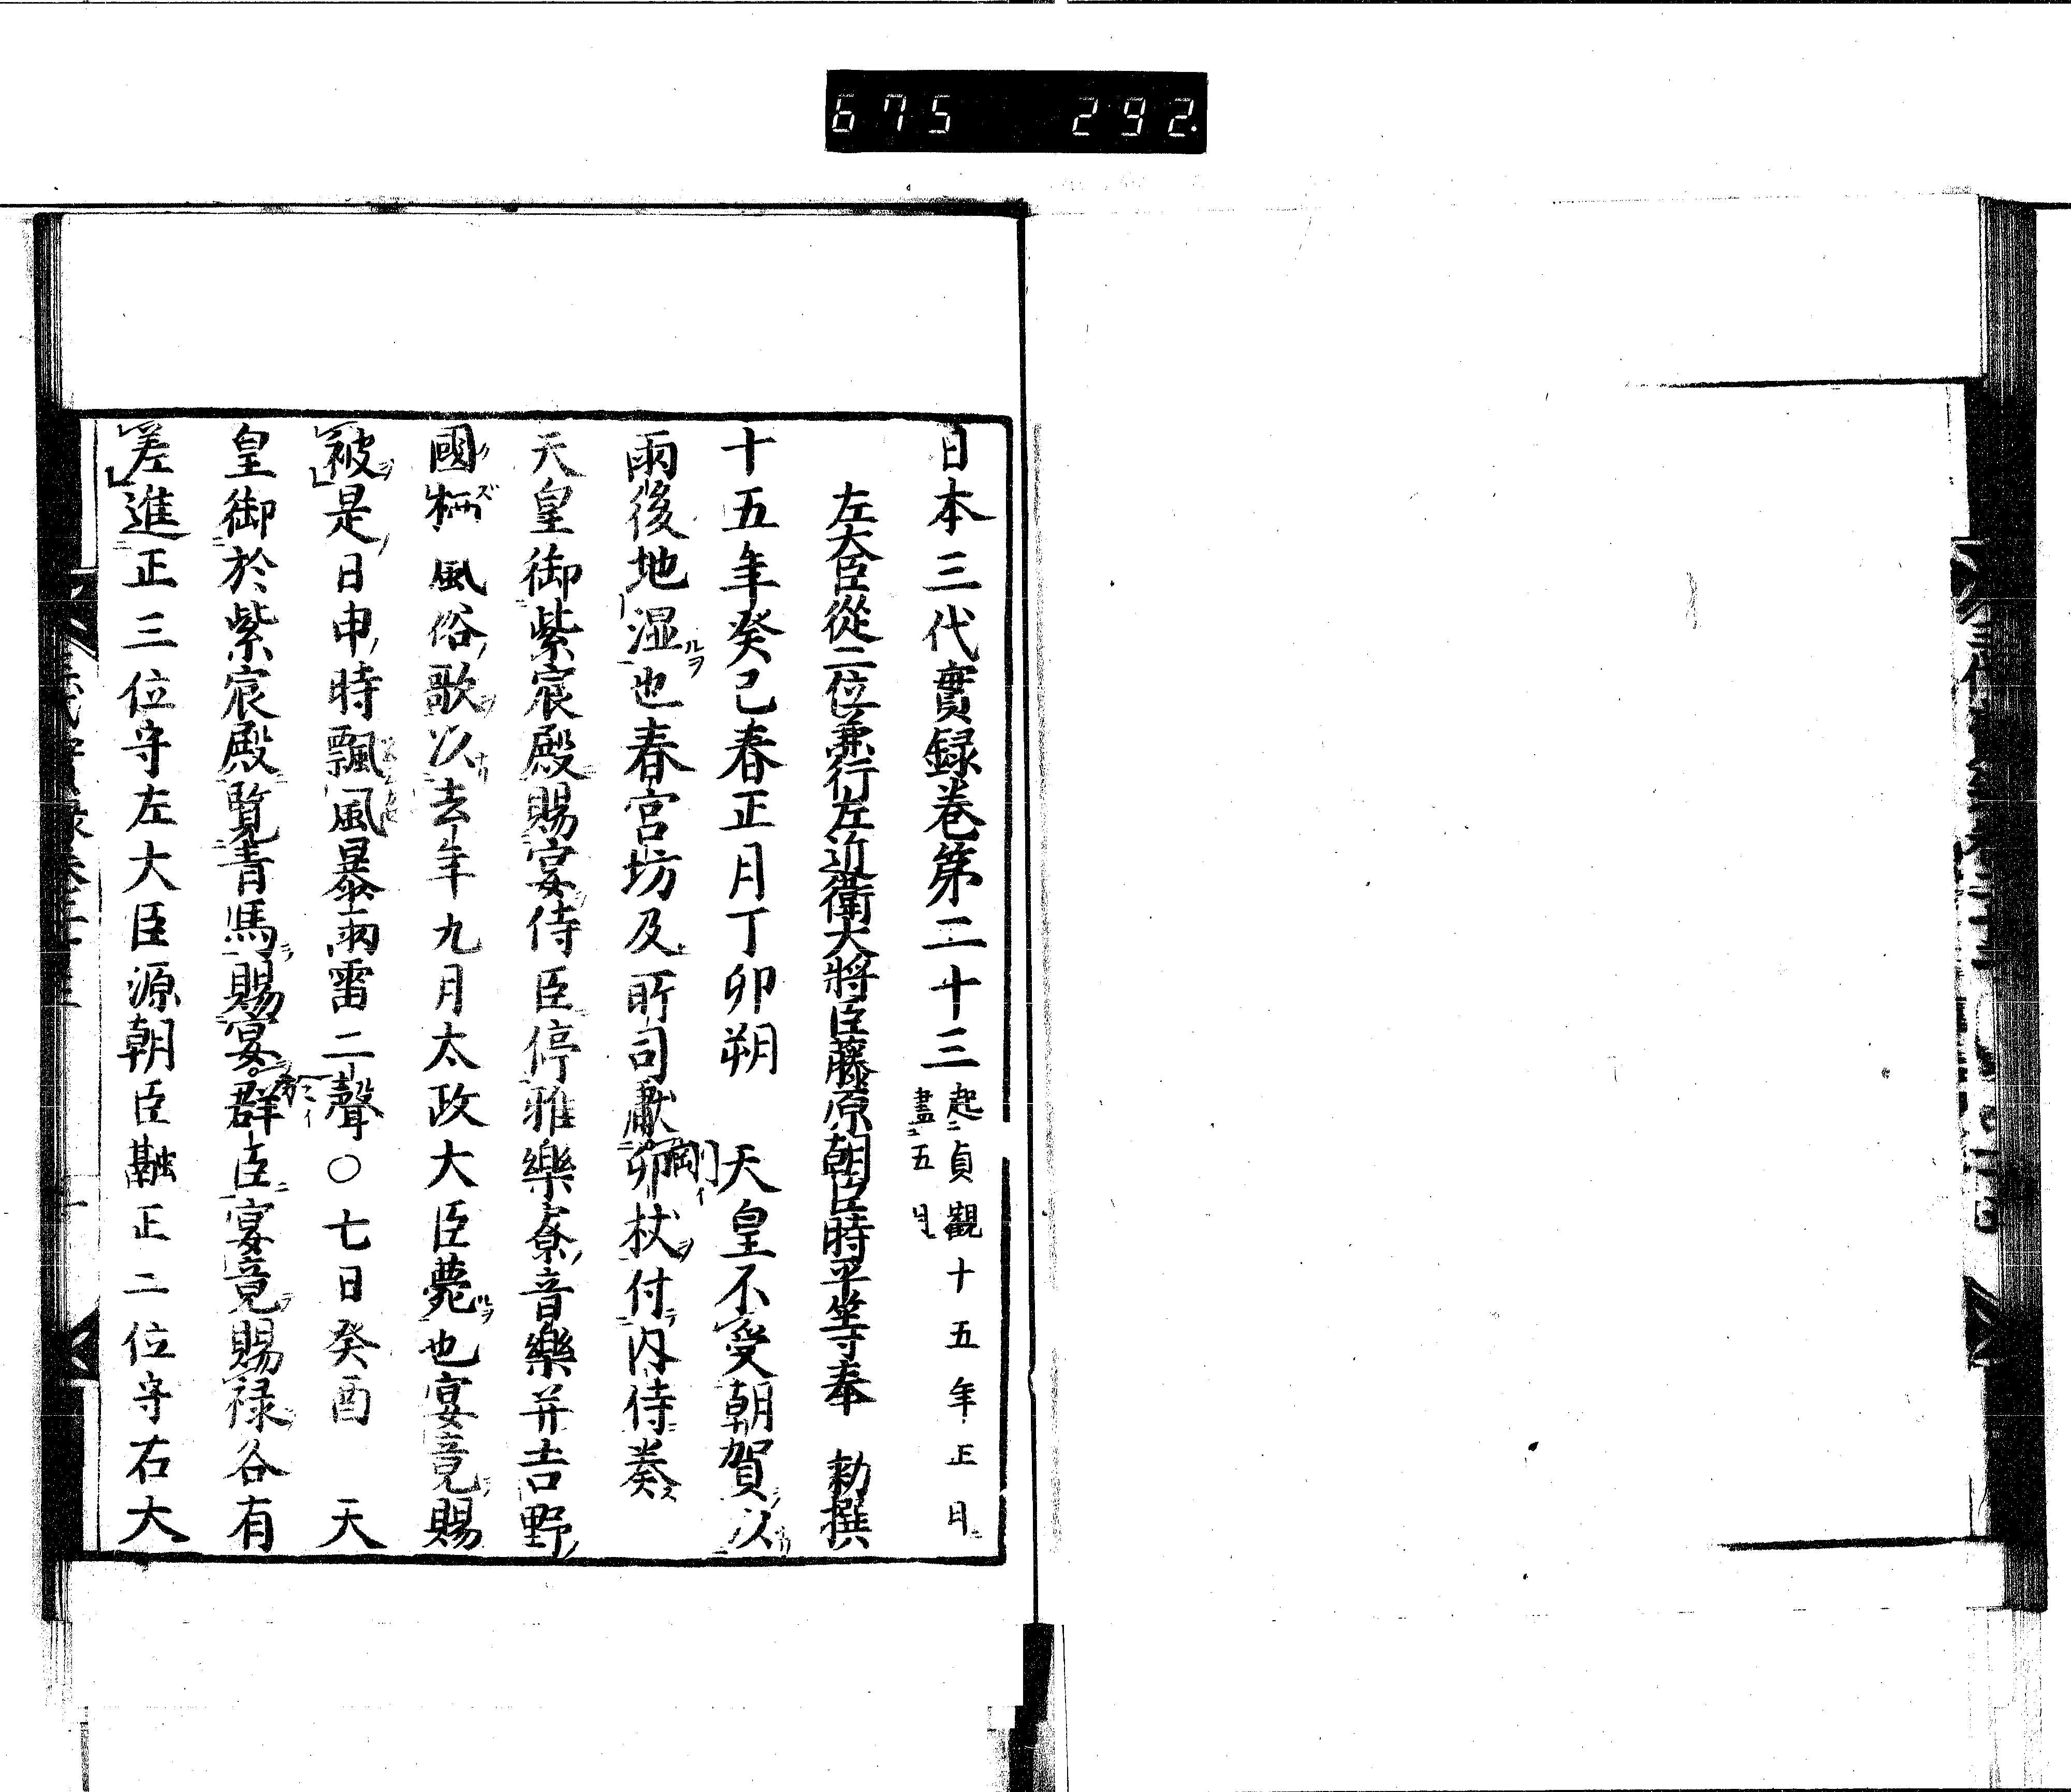 675 292
日本三代實録巻第二十三 起貞觀十五年正月
盡五月
左大臣從二位兼行左近衛大將臣藤原朝臣時平等奉 勅撰
十五年癸巳春正月丁卯朔 天皇不受朝賀以
雨後地湿也春宮坊及所司獻卯杖付内侍奏
剛イ
天皇御紫宸殿賜宴侍臣停雅樂寮音樂并吉野
國栖風俗歌以去年九月太政大臣薨也宴竟賜
被是日申時飄風暴雨雷二聲○七日癸酉 天
皇御於紫宸殿覧青馬賜宴群臣宴竟賜禄各有
差進正三位守左大臣源朝臣融正二位守右大